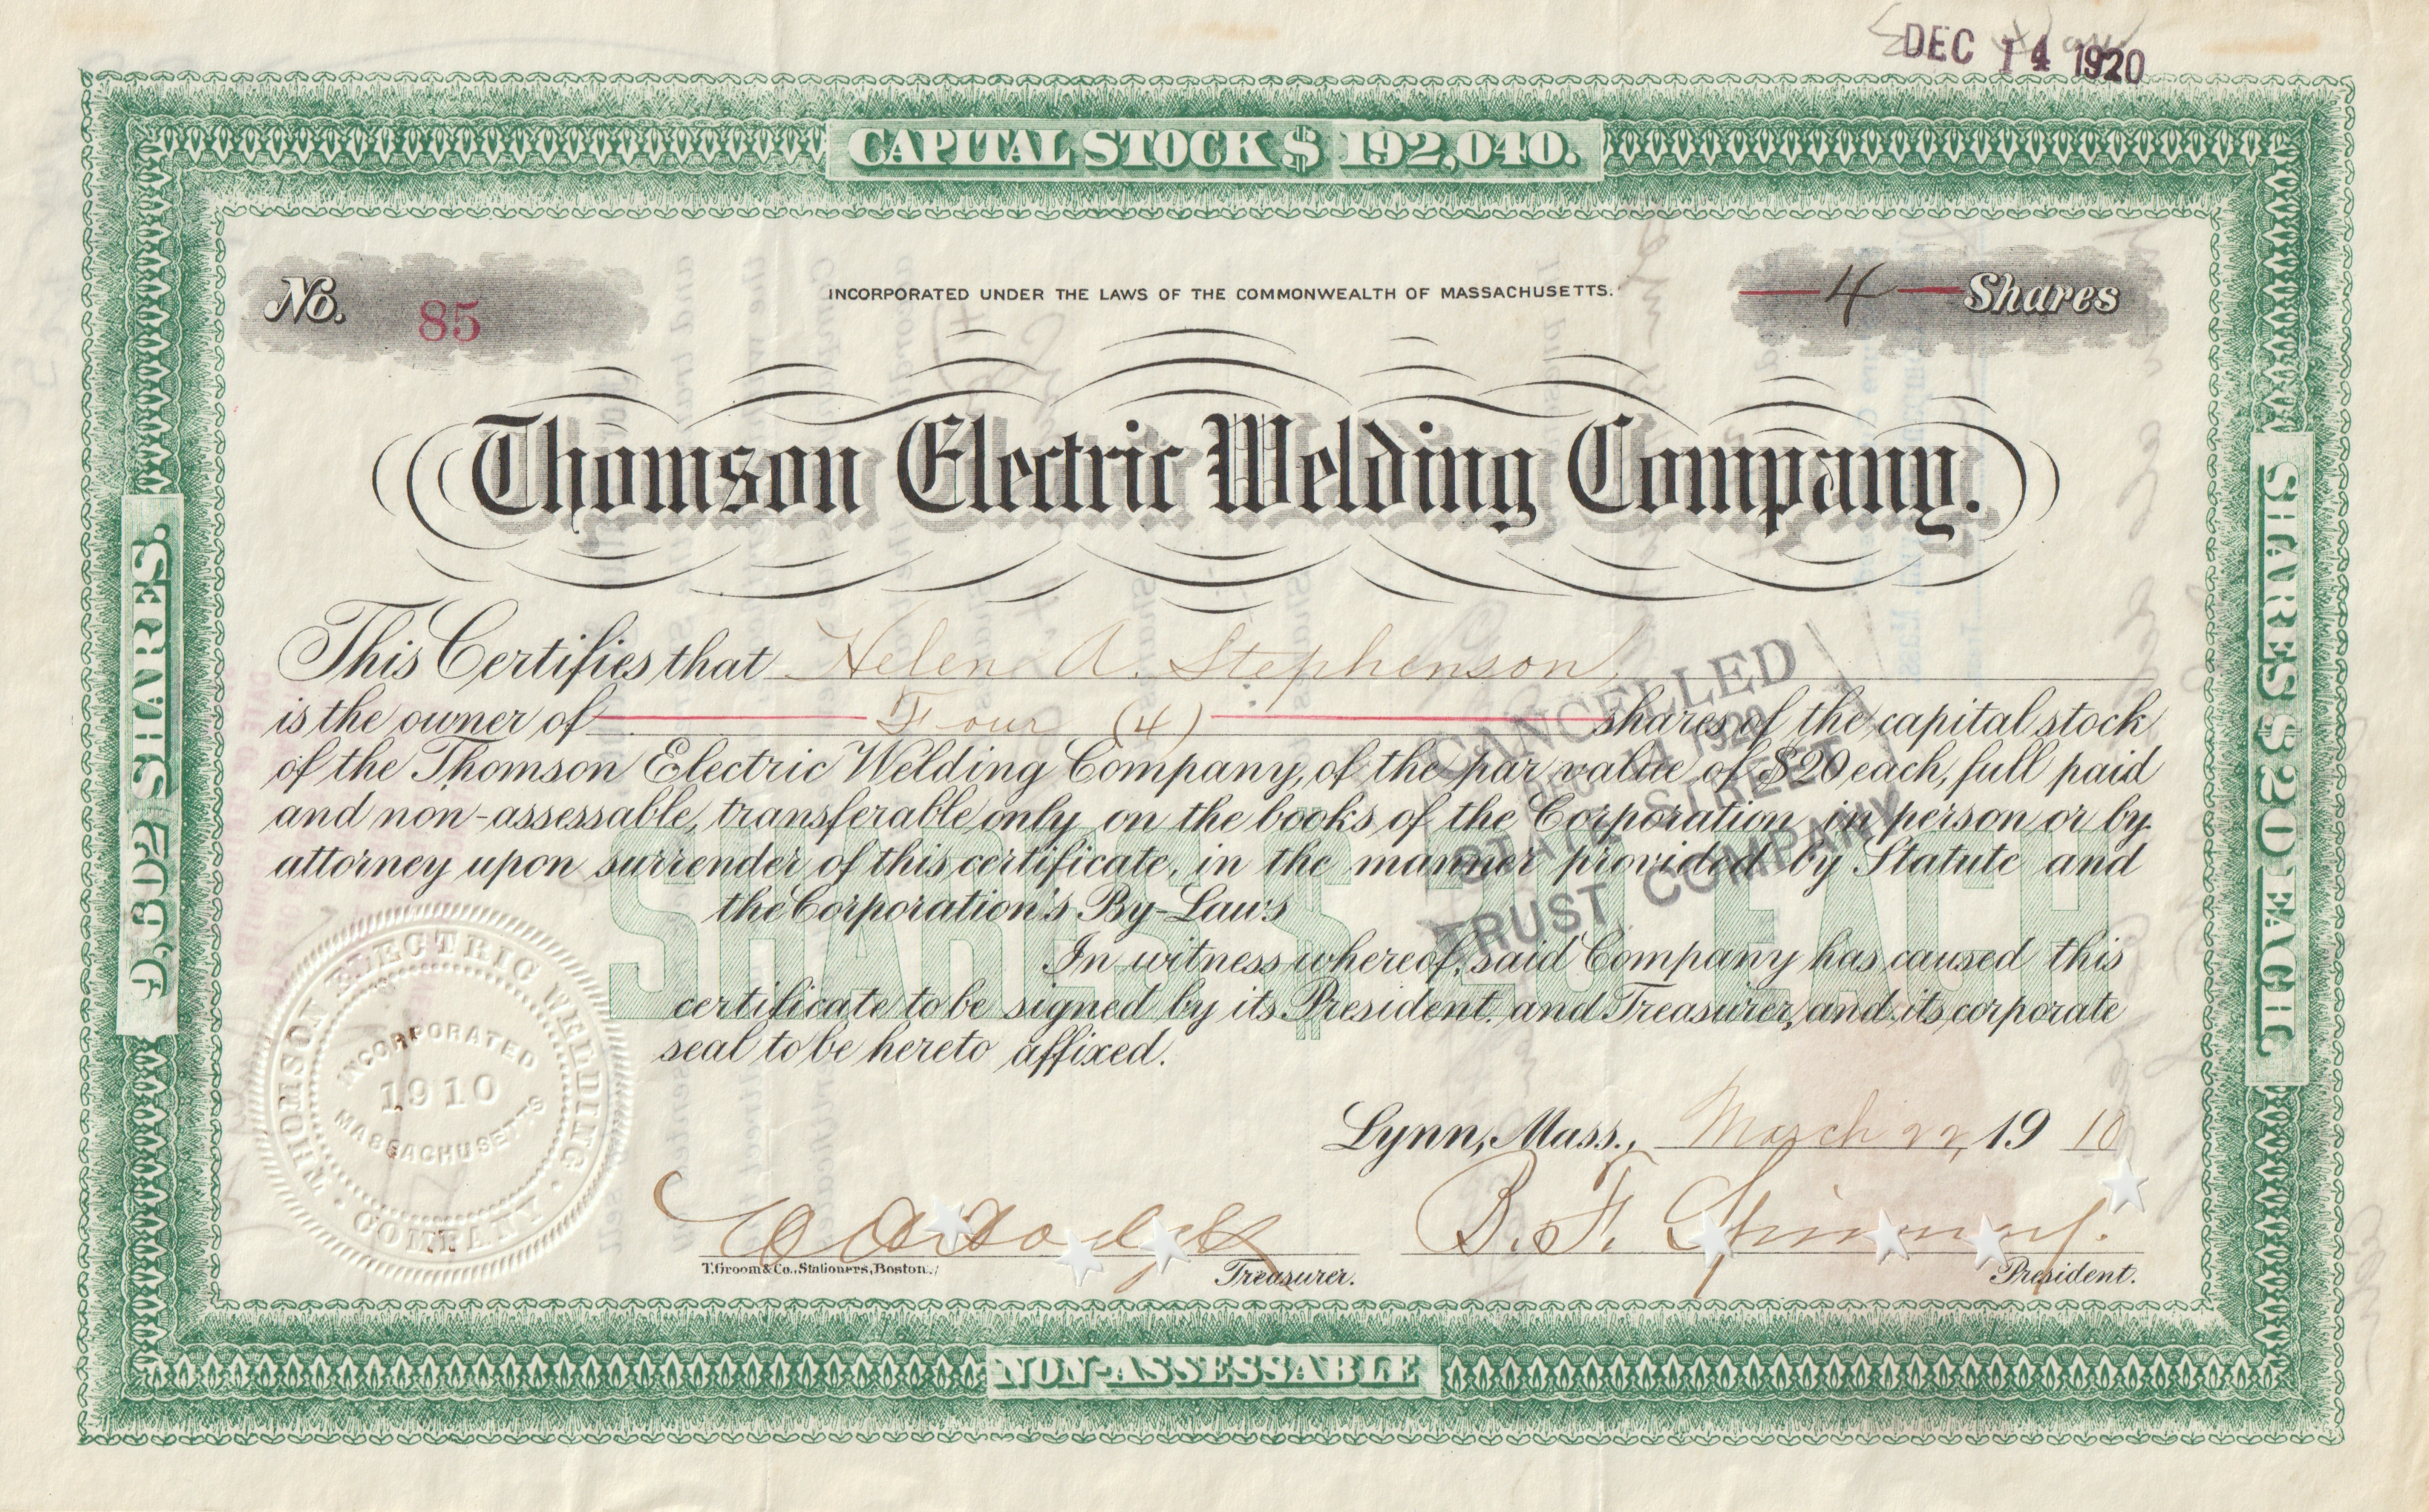 DEC 14 1920
CAPITAL STOCK $ 192,040.
No. 85
INCORPORATED UNDER THE LAWS OF THE COMMONWEALTH OF MASSACHUSETTS.
—4— Shares
Thomson Electric Welding Company.
9,602 SHARES.
SHARES $20 EACH
This Certifies that Helen A. Stephenson
is the owner of Four (4) shares of the capital stock
of the Thomson Electric Welding Company, of the par value of $20 each, full paid
and non-assessable, transferable only on the books of the Corporation in person or by
attorney upon surrender of this certificate, in the manner provided by Statute and
the Corporation's By-Laws
In witness whereof, said Company has caused this
certificate to be signed by its President and Treasurer, and its corporate
seal to be hereto affixed.
SHARES $ 20 EACH
CANCELLED
DEC 14 1920
STATE STREET
TRUST COMPANY
THOMSON ELECTRIC WELDING COMPANY
INCORPORATED
1910
MASSACHUSETTS
Lynn, Mass., March 22, 1910
B. F.
T. Groom & Co., Stationers, Boston.
Treasurer.
President.
NON-ASSESSABLE